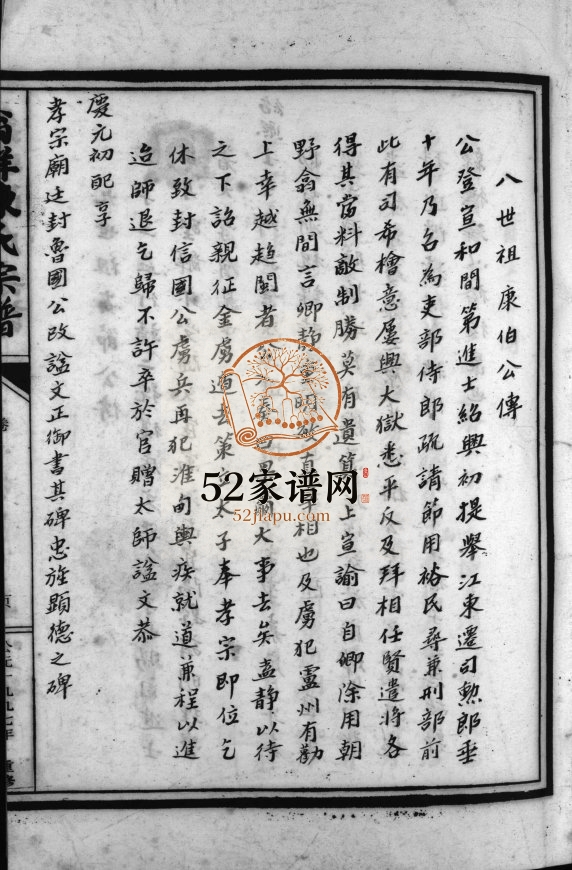 八世祖康伯公傳
公登宣和間第進士紹興初提舉江東遷司勲郎垂
十年乃召為吏部侍郎疏請節用裕民尋兼刑部前
此有司希檜意屢興大獄悉平反及拜相任賢遣將各
得其當料敵制勝莫有遺算上宣諭曰自卿除用朝
野翕無間言卿靜重明敏真宰相也及虜犯盧州有勸
上幸越趋閩者大事去矣盍静以待
之下詔親征金虜遁去策立太子奉孝宗即位乞
休致封信國公虜兵再犯淮甸輿疾就道兼程以進
迨師退乞歸不許卒於官贈太師諡文恭
慶元初配享
孝宗廟廷封魯國公改諡文正御書其碑忠旌顯德之碑
陳氏宗譜
卷
頁
公元一九九七年
重修
52家谱网
52jiapu.com